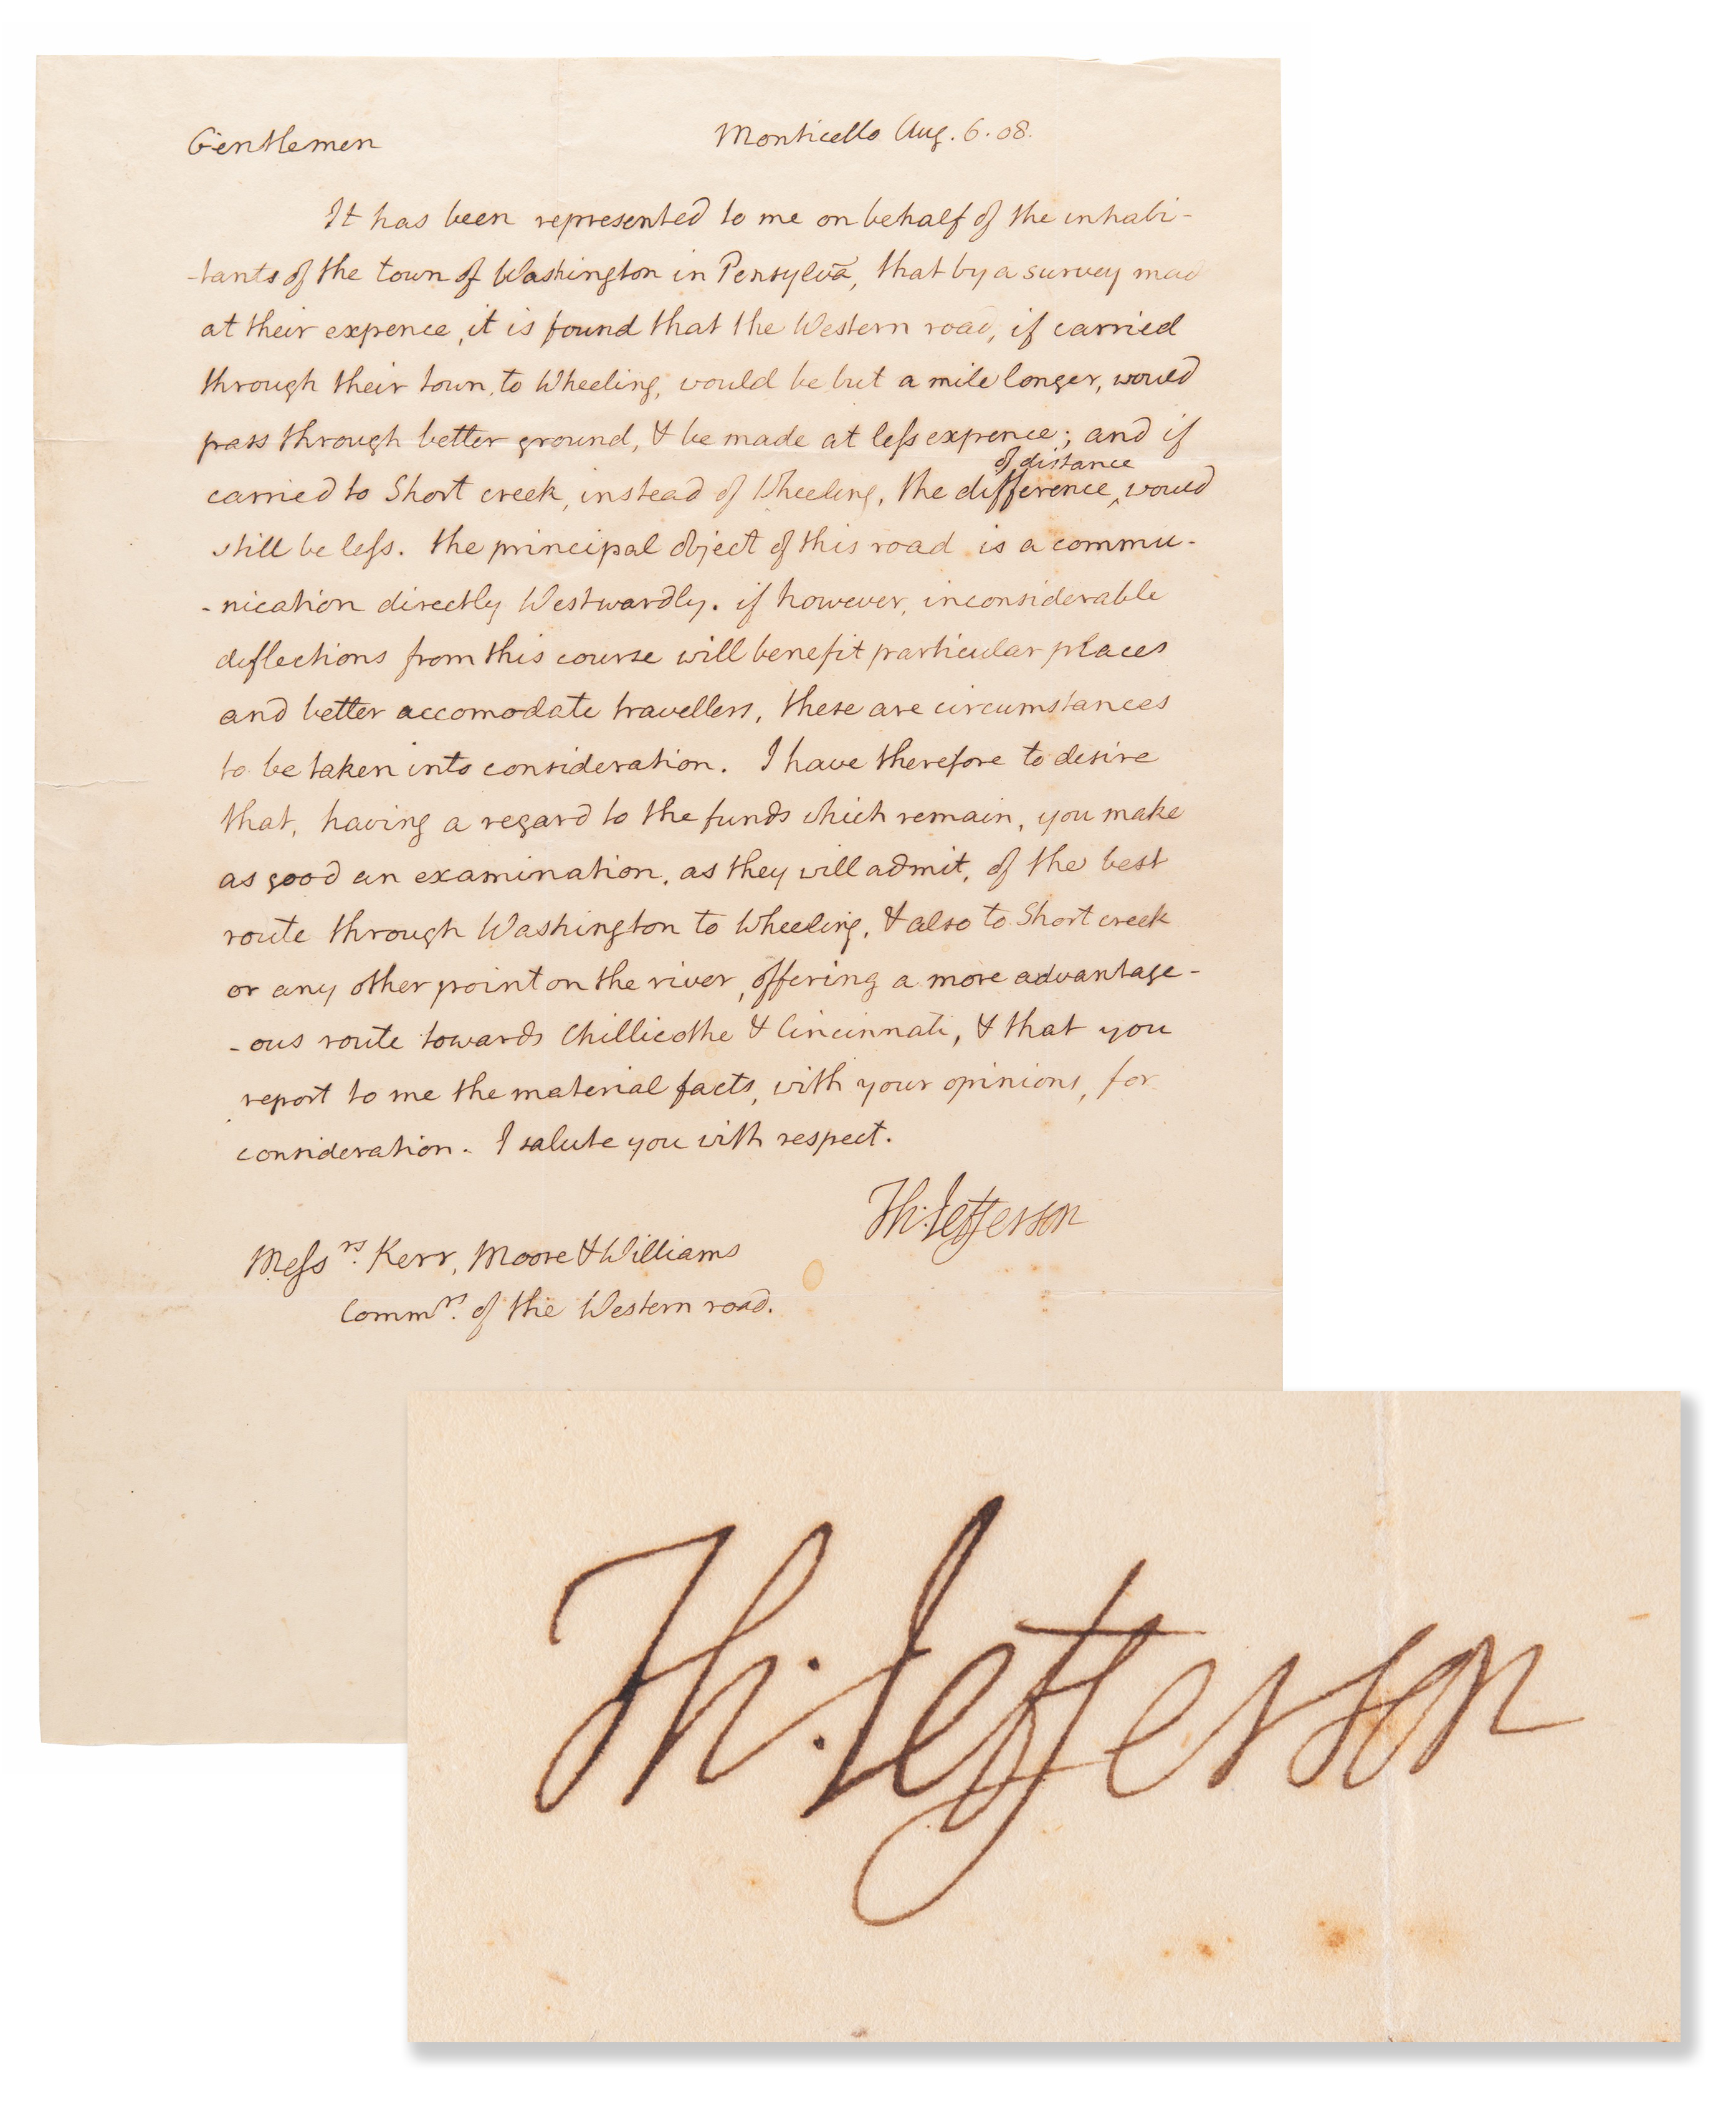 Gentlemen Monticello Aug. 6. 08.
It has been represented to me on behalf of the inhabi-
-tants of the town of Washington in Pensylva̅, that by a survey mad
at their expence, it is found that the Western road, if carried
through their town, to Wheeling, would be but a mile longer, would
pass through better ground, & be made at less expence; and if
of distance
carried to Short creek, instead of Wheeling, the difference ‸ would
still be less. the principal object of this road is a commu-
-nication directly Westwardly. if however, inconsiderable
deflections from this course will benefit particular places
and better accomodate travellers, these are circumstances
to be taken into consideration. I have therefore to desire
that, having a regard to the funds which remain, you make
as good an examination, as they will admit, of the best
route through Washington to Wheeling, & also to Short creek
or any other point on the river, offering a more advantage-
-ous route towards Chillicothe & Cincinnati, & that you
report to me the material facts, with your opinions, for
consideration. I salute you with respect.
Th: Jefferson
Messrs. Kerr, Moore & Williams
Commrs. of the Western road.
Th: Jefferson